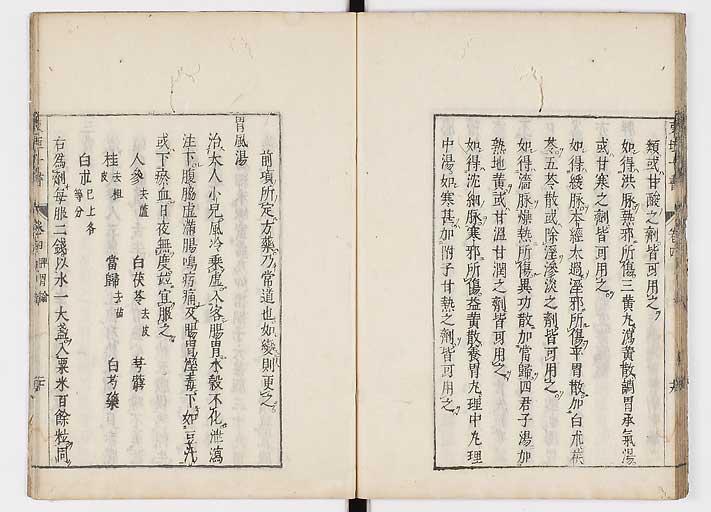 類或甘酸之劑皆可用之
如得洪脉熱邪所傷三黃丸瀉黃散調胃承氣湯
或甘寒之劑皆可用之
如得緩脉本經太過溼邪所傷平胃散加白朮茯
苓五苓散或除溼滲淡之劑皆可用之
如得濇脉燥熱所傷異功散加當歸四君子湯加
熟地黃或甘溫甘潤之劑皆可用之
如得沈細脉寒邪所傷益黃散養胃丸理中丸理
中湯如寒甚加附子甘熱之劑皆可用之
前項所定方藥乃常道也如變則更之
胃風湯
治大人小兒風冷乘虛入客腸胃水穀不化泄瀉
注下腹脇虛滿腸鳴㽲痛及腸胃溼毒下如豆汁
或下瘀血日夜無度並宜服之
人參去蘆 白茯苓去皮 芎藭
桂去粗皮 當歸去苗 白芍藥
白朮已上各等分
右爲剉每服二錢以水一大盞入粟米百餘粒同